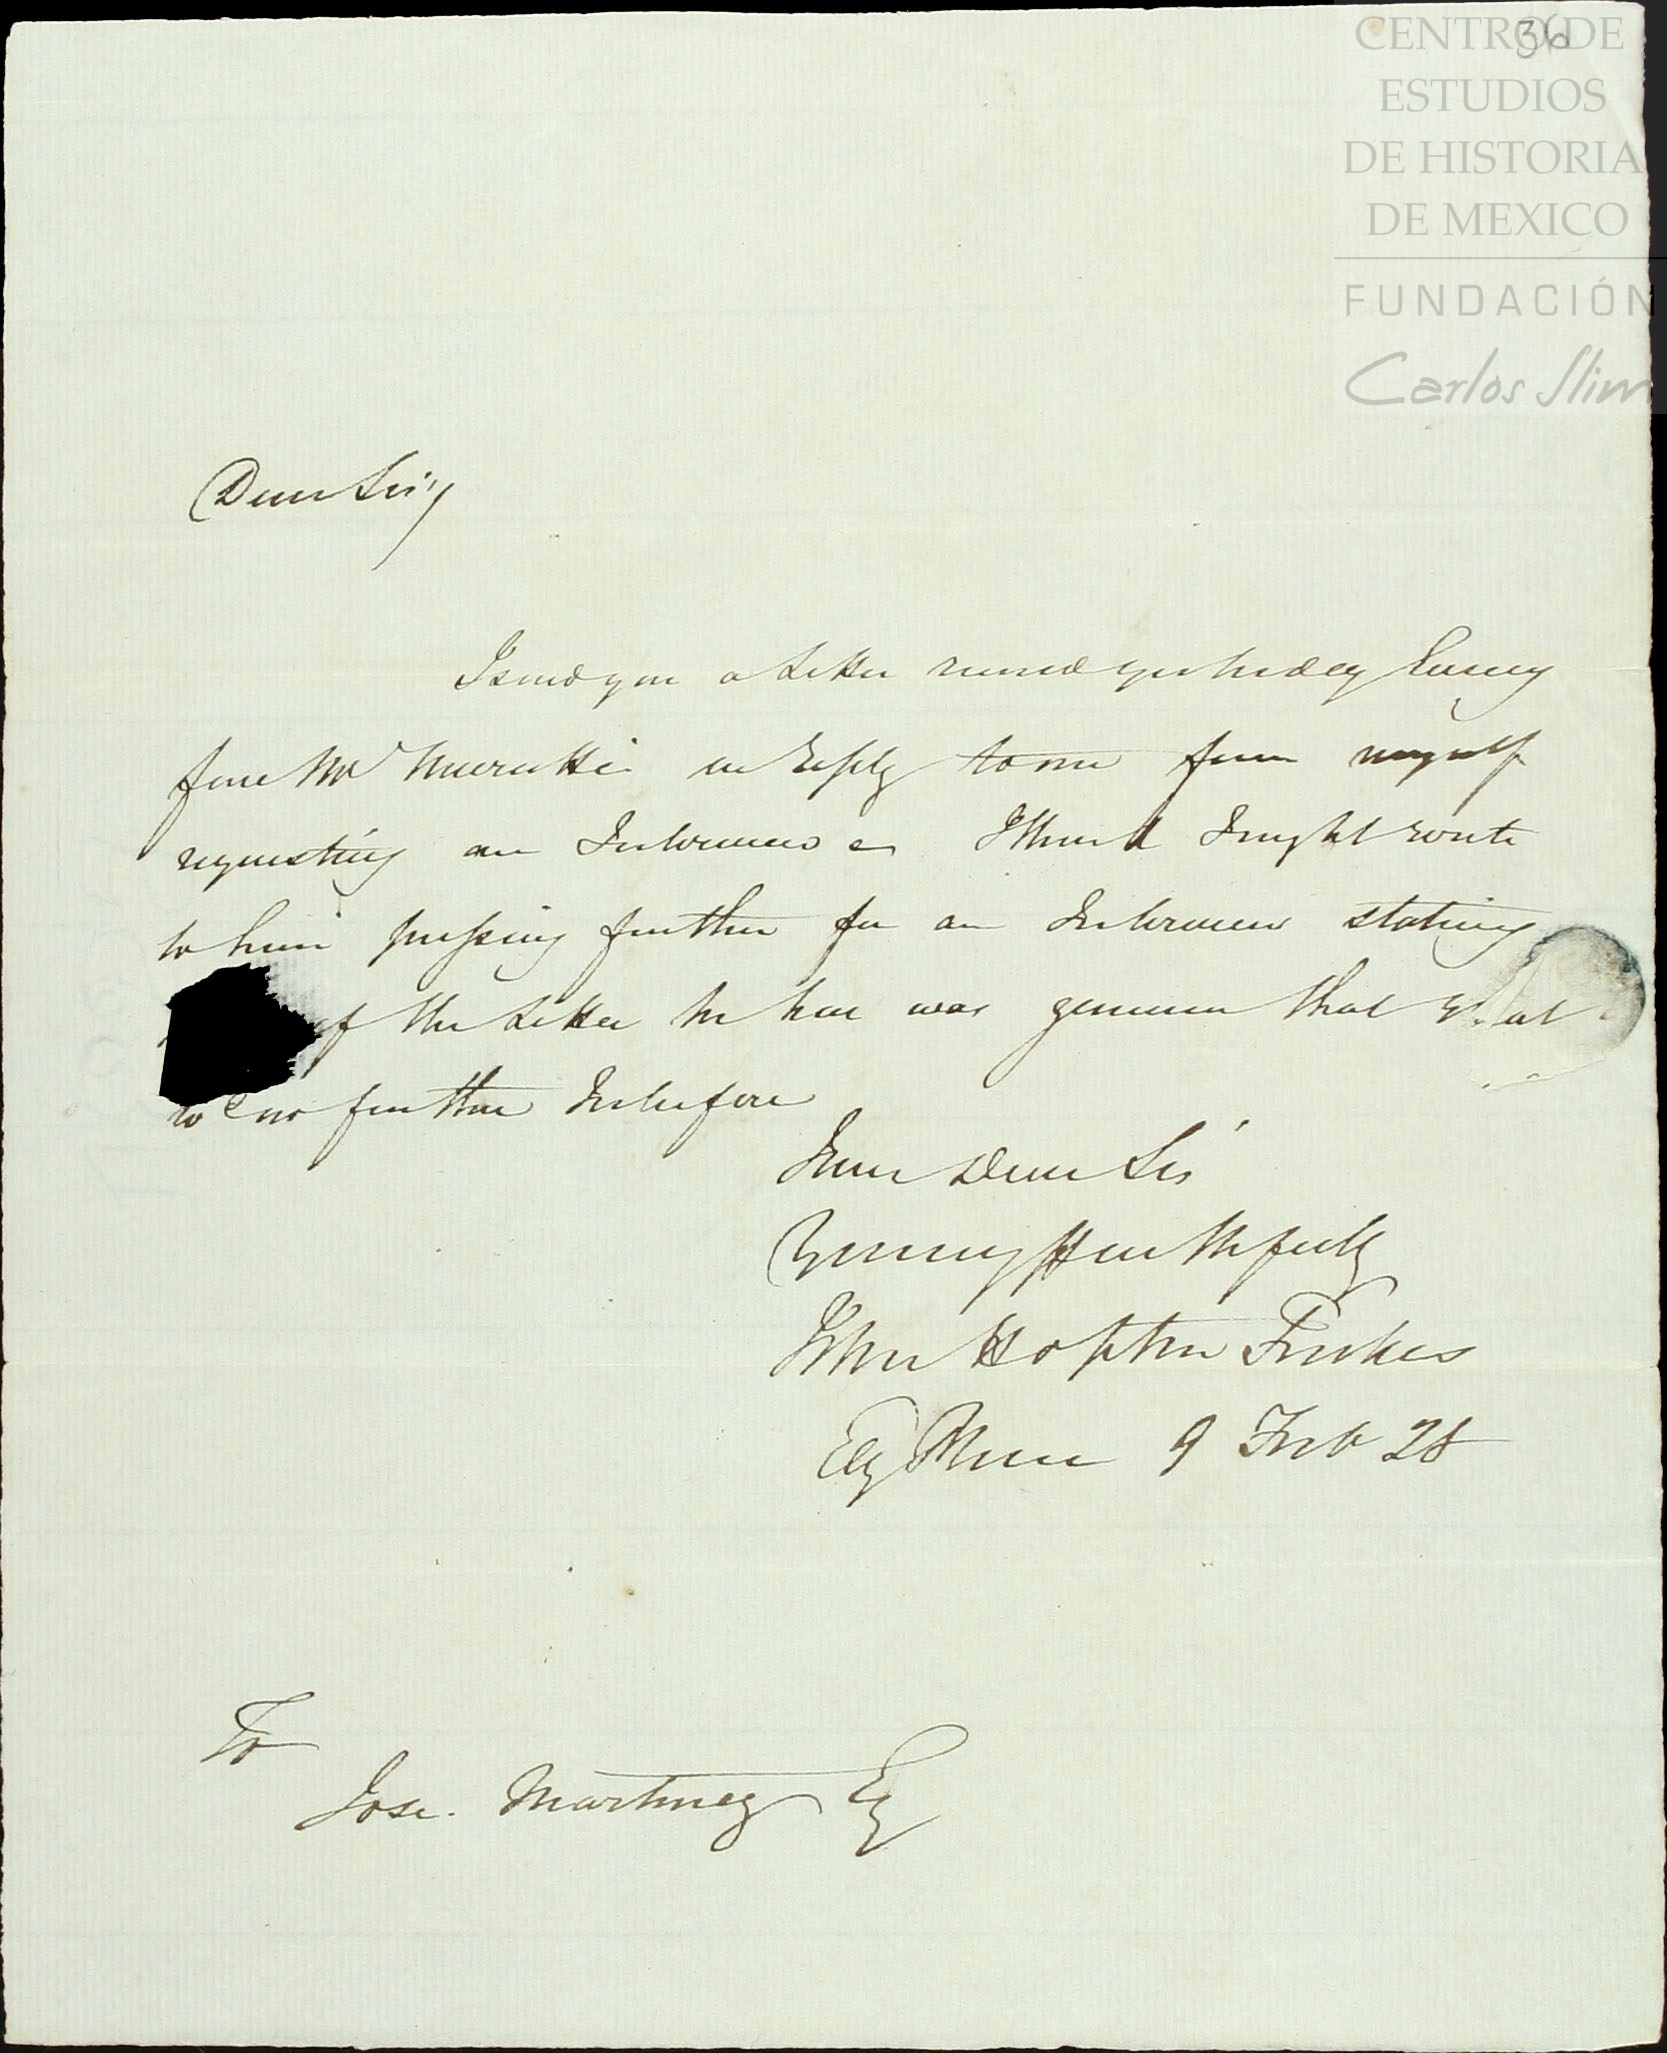 36
CENTRO DE
ESTUDIOS
DE HISTORIA
DE MEXICO
FUNDACIÓN
Carlos Slim
Dear Sir,
I send you a Letter received yesterday Evening
from Mr in Reply to one from myself
requesting an Interview I think I might write
to him pressing further for an Interview stating
if the Letter he has was genuine that
to no further
I am Dear Sir
Yours faithfully
John Hopton Forbes
Ely Place 9 Feb 28
To
Jose. Martinez Esq